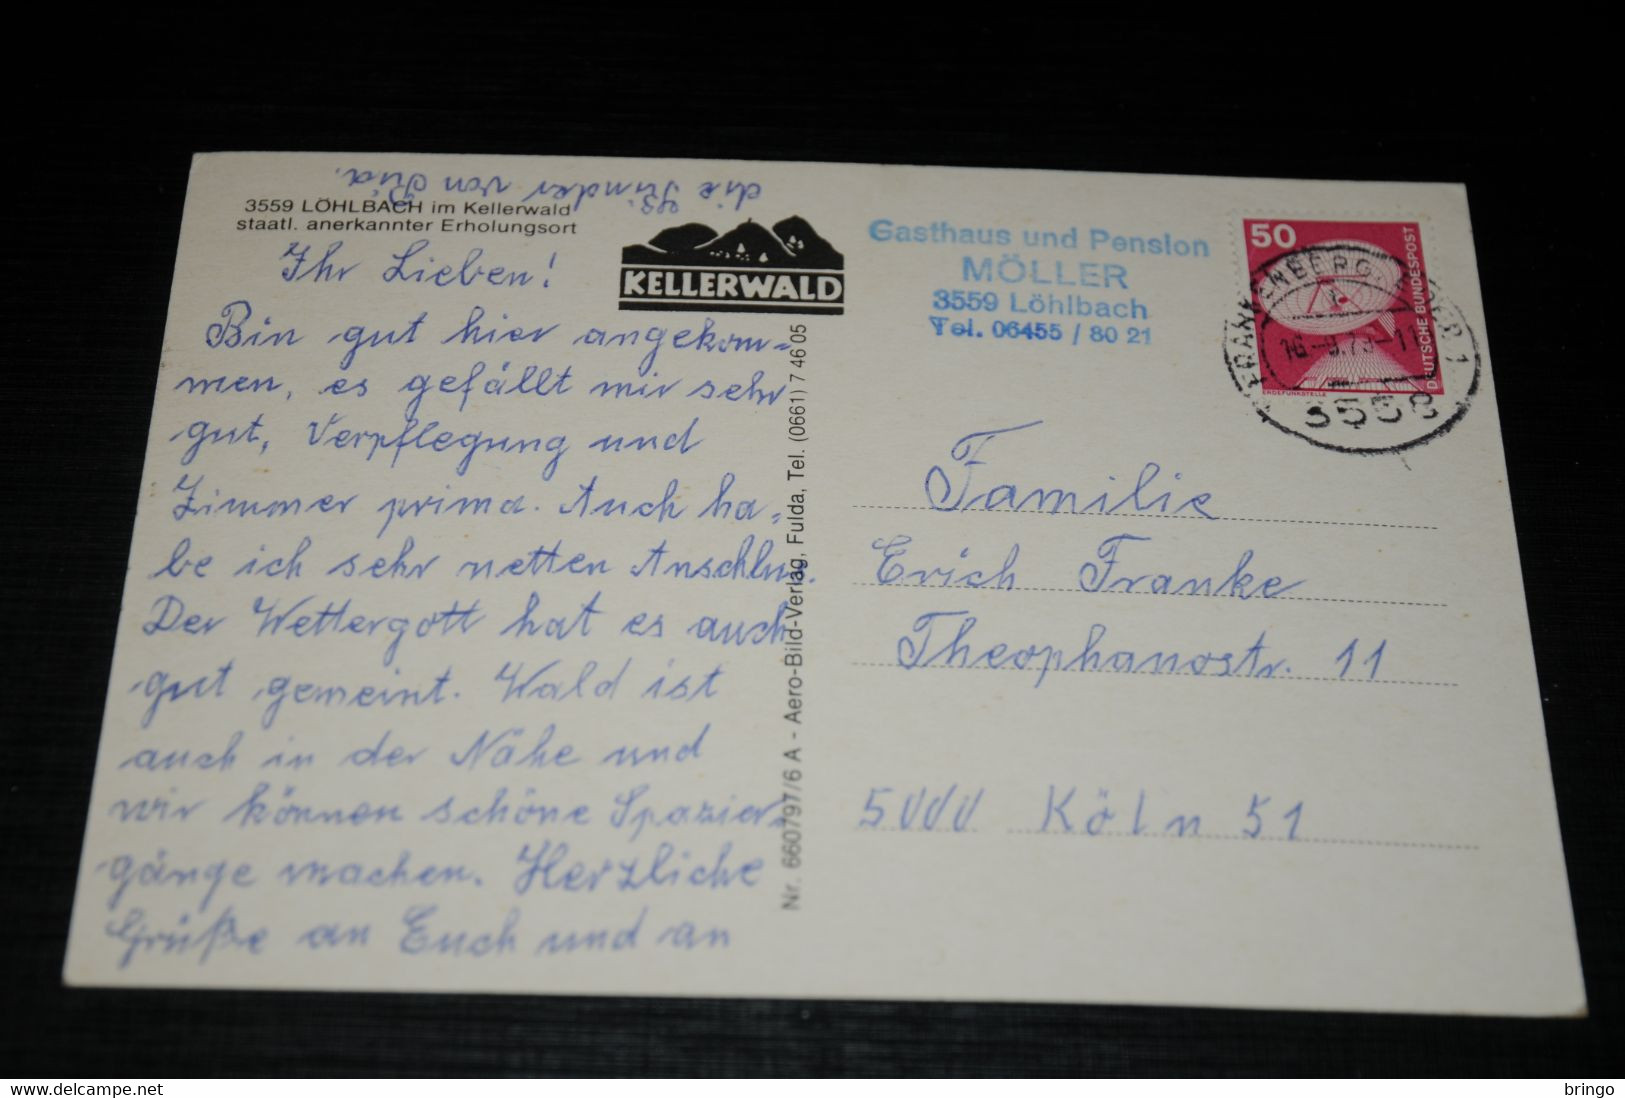 3559 LÖHLBACH im Kellerwald
staatl. anerkannter Erholungsort
Ihr Lieben!
Bin gut hier angekom-
men, es gefällt mir sehr
gut, Verpflegung und
Zimmer prima. Auch ha-
be ich sehr netten Anschluß.
Der Wettergott hat es auch
gut gemeint. Wald ist
auch in der Nähe und
wir können schöne Spazier-
gänge machen. Herzliche
Grüße an Euch und an
die Kinder von
KELLERWALD
Nr. 660797/6 A - Aero-Bild-Verlag, Fulda, Tel. (0661) 7 46 05
Gasthaus und Pension
MÖLLER
3559 Löhlbach
Tel. 06455 / 80 21
50
DEUTSCHE BUNDESPOST
ERDEFUNKSTELLE
FRANKENBERG, EDER 1
16.-9.79-11
3558
Familie
Erich Franke
Theophanostr. 11
5000 Köln 51
bringo